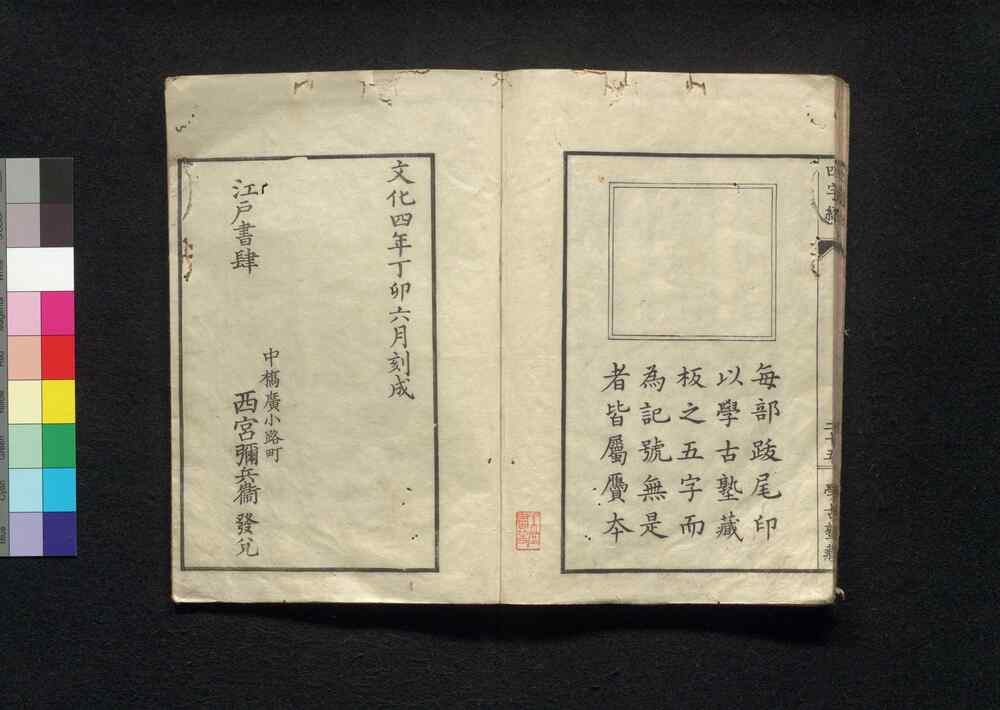 四字經
二十五
學古塾藏
每部跋尾印
以學古塾藏
板之五字而
為記號無是
者皆屬贗本
文化四年丁卯六月刻成
江戶書肆
中橋廣小路町
西宮彌兵衞 發兌